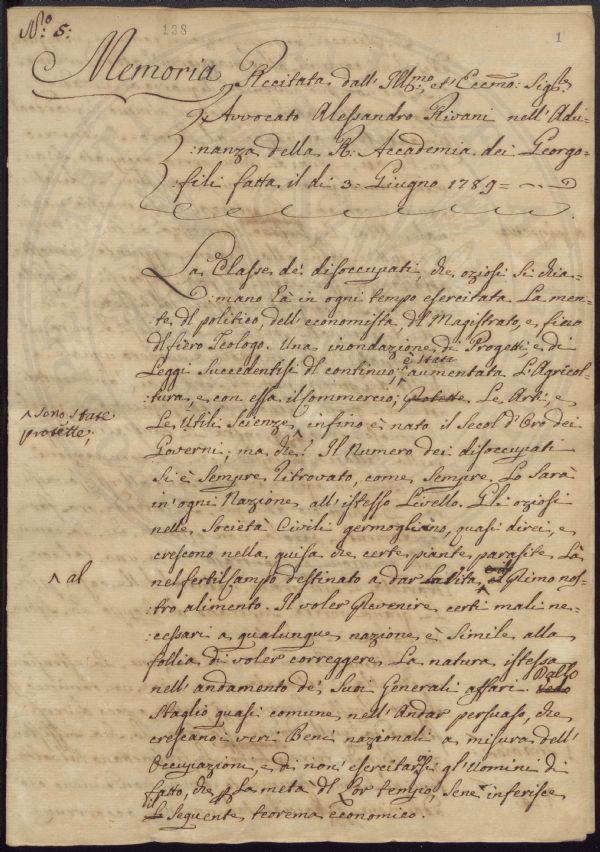 N.o 5:
138
1
Memoria Recitata dall' Ill:mo, et Ecc:mo: Sig:re
Avvocato Alessandro Rivani nell' Adu=
:nanza della R: Accademia dei Georgo=
fili fatta il dì 3: Giugno 1789=
La Classe de' disoccupati, che oziosi si chia=
:mano Ea in ogni tempo esercitata La men=
te dl politico, dell' economista, dl Magistrato, e fino
dl fiero Teologo. Una inondazione di Progetti, e di
Leggi Succedentisi dl continuo; è stata
aumentata L'Agricol=
tura, e con essa il Commercio; Protette Le Arti, e
^ sono state
protette;
Le Utili Scienze, infino è nato il Secol d'Oro dei
Governi; ma che? Il Numero dei disoccupati
Si è Sempre ritrovato, come Sempre Lo Sarà
in' ogni Nazione all' istesso Livello. Gli oziosi
nelle Società Civili germogliano, quasi direi, e
crescono nella guisa che certe piante parasite Là
nel fertil campo destinato a dar La vita, Primo nos=
^ al
:tro alimento. Il voler Prevenire certi mali ne=
:cessari a qualunque nazione è Simile alla
follia di voler correggere La natura istessa
nell' andamento de' Suoi Generali affari. Dallo
Staglio quasi comune nell' Andar persuaso, che
crescano i veri Beni nazionali a misura dell'
Occupazioni, e di non' esercitarsi gl' Uomini di
fatto, che p La metà dl Lor tempo, Sene inferisce
il Seguente teorema economico.